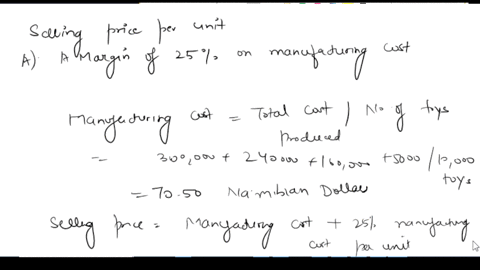 Selling price per unit
A) A Margin of 25% on manufacturing cost
Manufacturing cost = Total cost / No of toys
produced
= 300,000 + 240000 + 160,000 + 5000 / 10,000
toys
= 70.50 Naimbian Dollar
Selling price = Manufacturing cost + 25% manufacturing
cost per unit